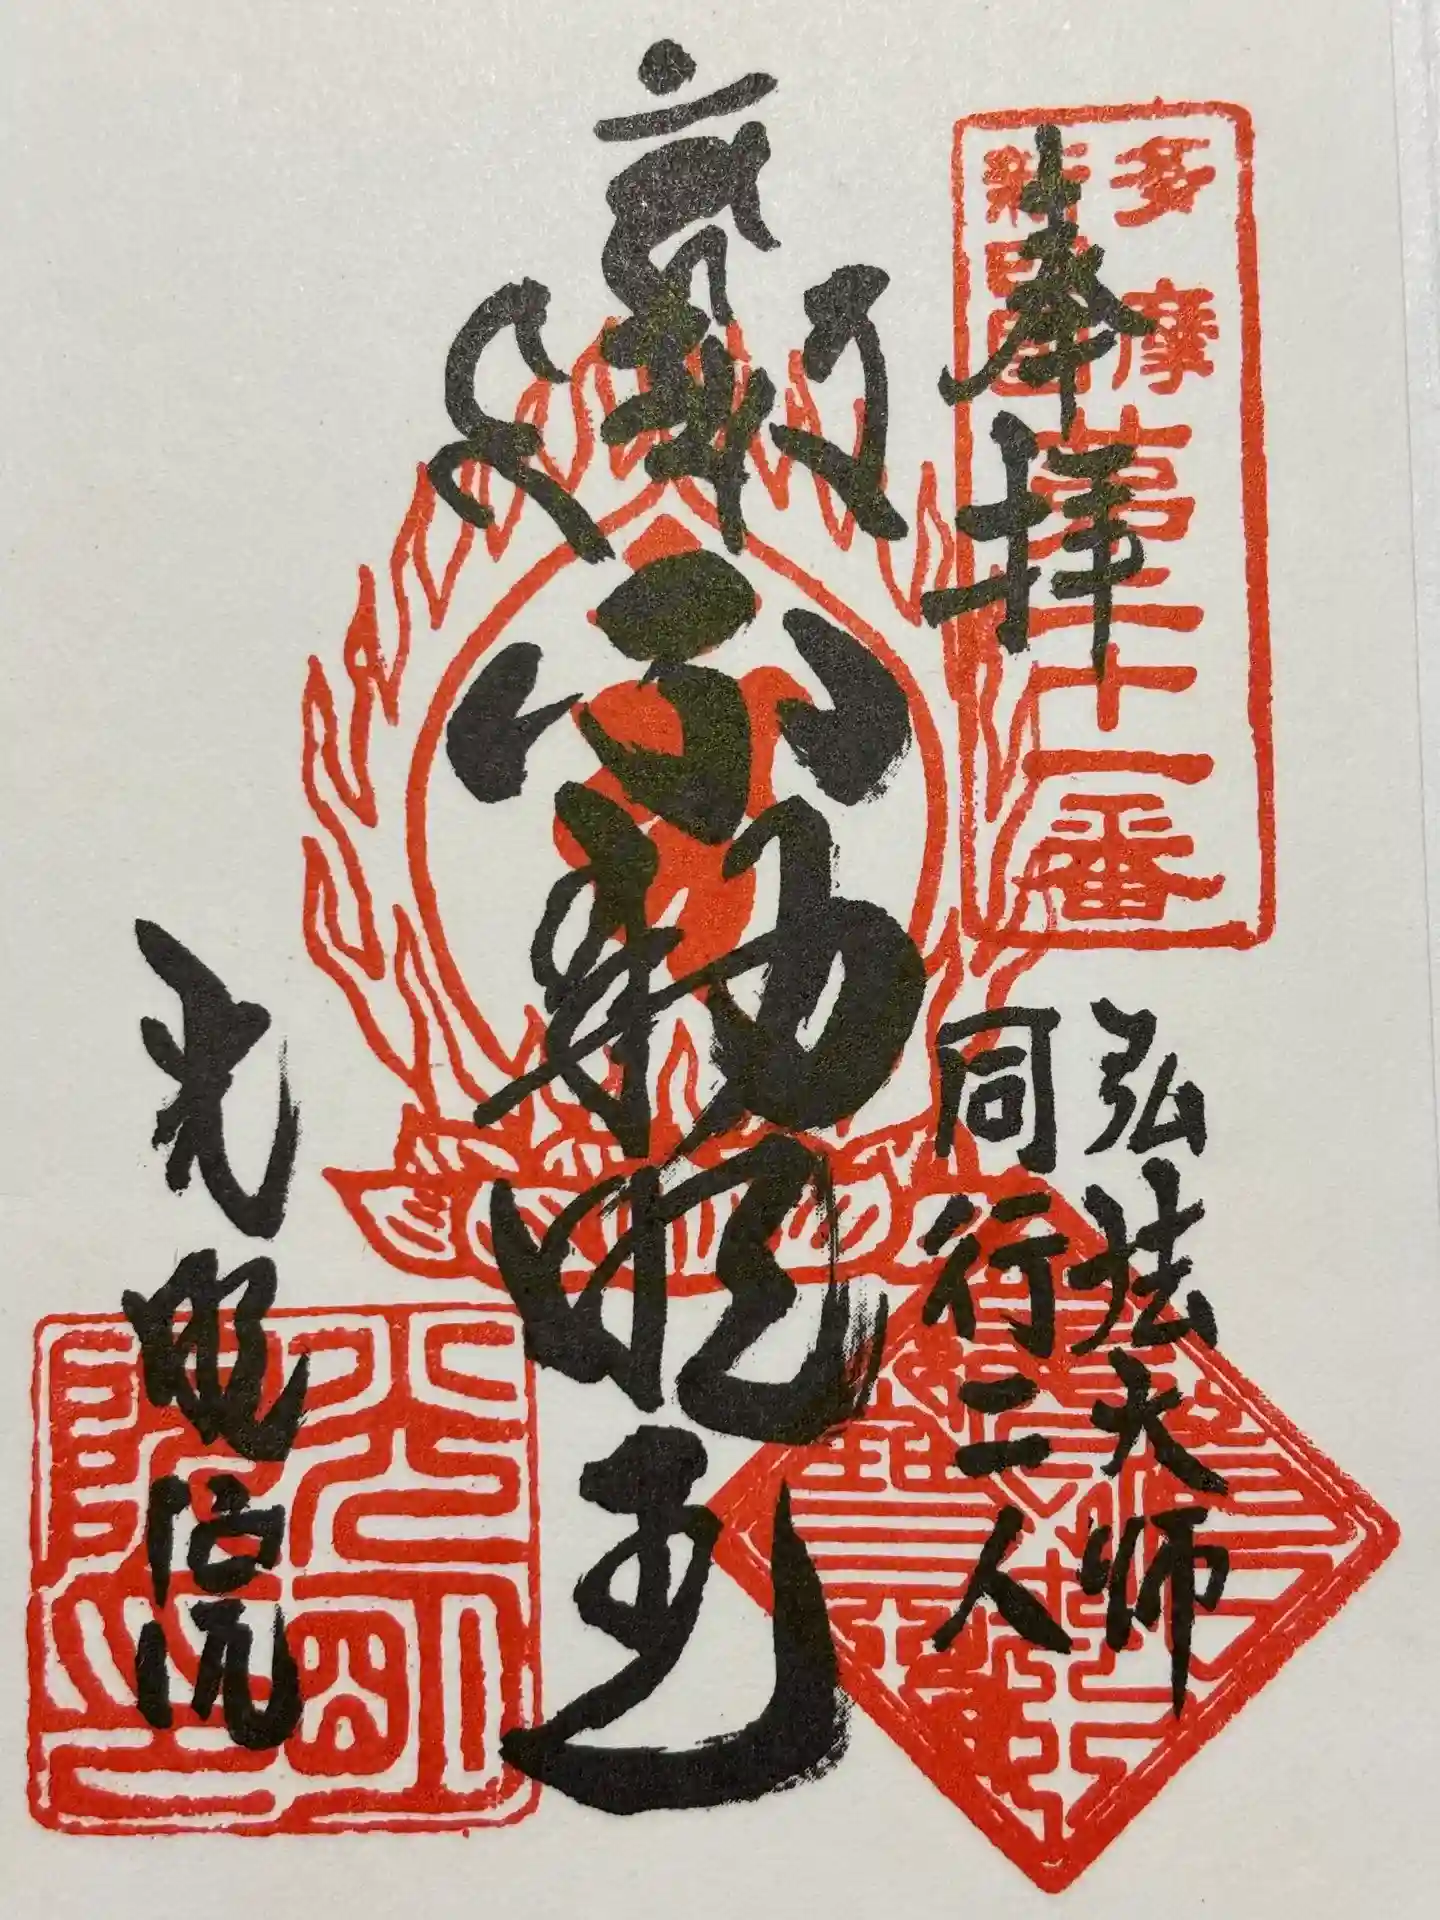 奉拝
多摩
新四國
第三十一番
弘法大师
同行二人
不動明王
光明院